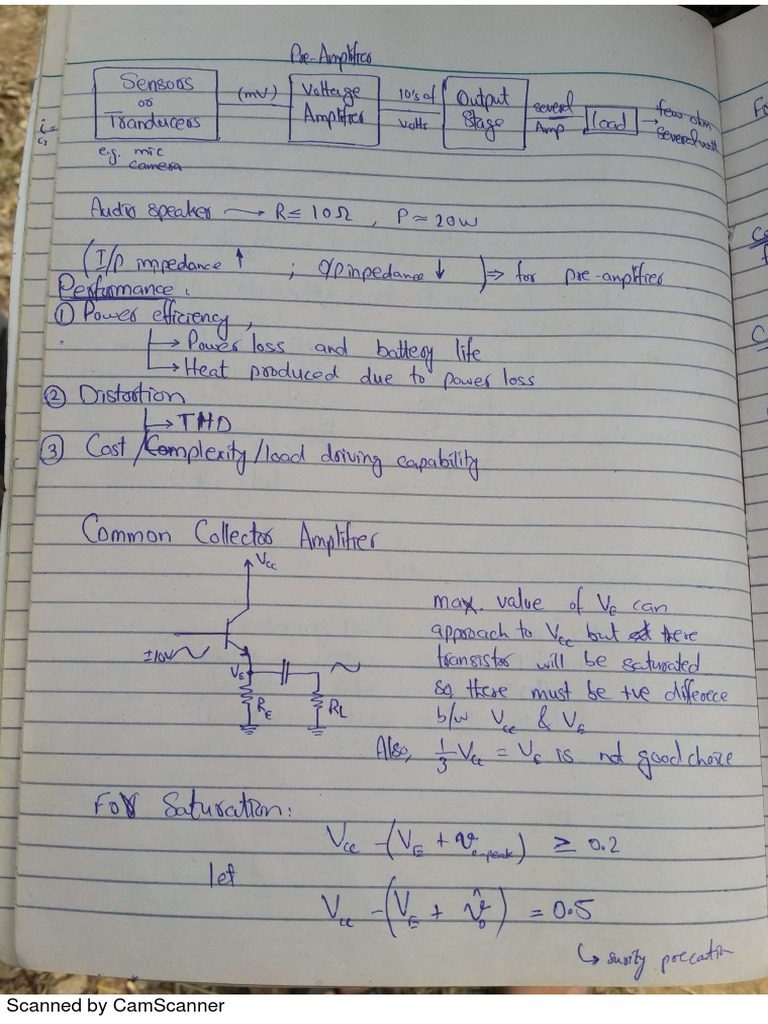 Pre-Amplifier
Sensors
or
Tranducers
(mV)
Voltage
Amplifier
10's of
volts
Output
Stage
several
Amp
load
few ohm
several watt
e.g. mic
camera
Audio speaker → R ≤ 10Ω , P ≈ 20W
(I/P impedance ↑ ; O/P inpedance ↓ ) ⇒ for pre-amplifier
Performance.
① Power efficiency,
→ Power loss and battery life
→ Heat produced due to power loss
② Distortion
→ THD
③ Cost / Complexity / load driving capability
Common Collector Amplifier
Vcc
±10V
VE
RE
RL
max. value of VE can
approach to Vcc but there
transistor will be saturated
so there must be +ve differece
b/w Vcc & VE
Also, 1/3 Vcc = VE is not good choice
For Saturation:
Vcc - (VE + vo-peak) ≥ 0.2
let
Vcc - (VE + v̂o) = 0.5
↳ surity precatin
Scanned by CamScanner